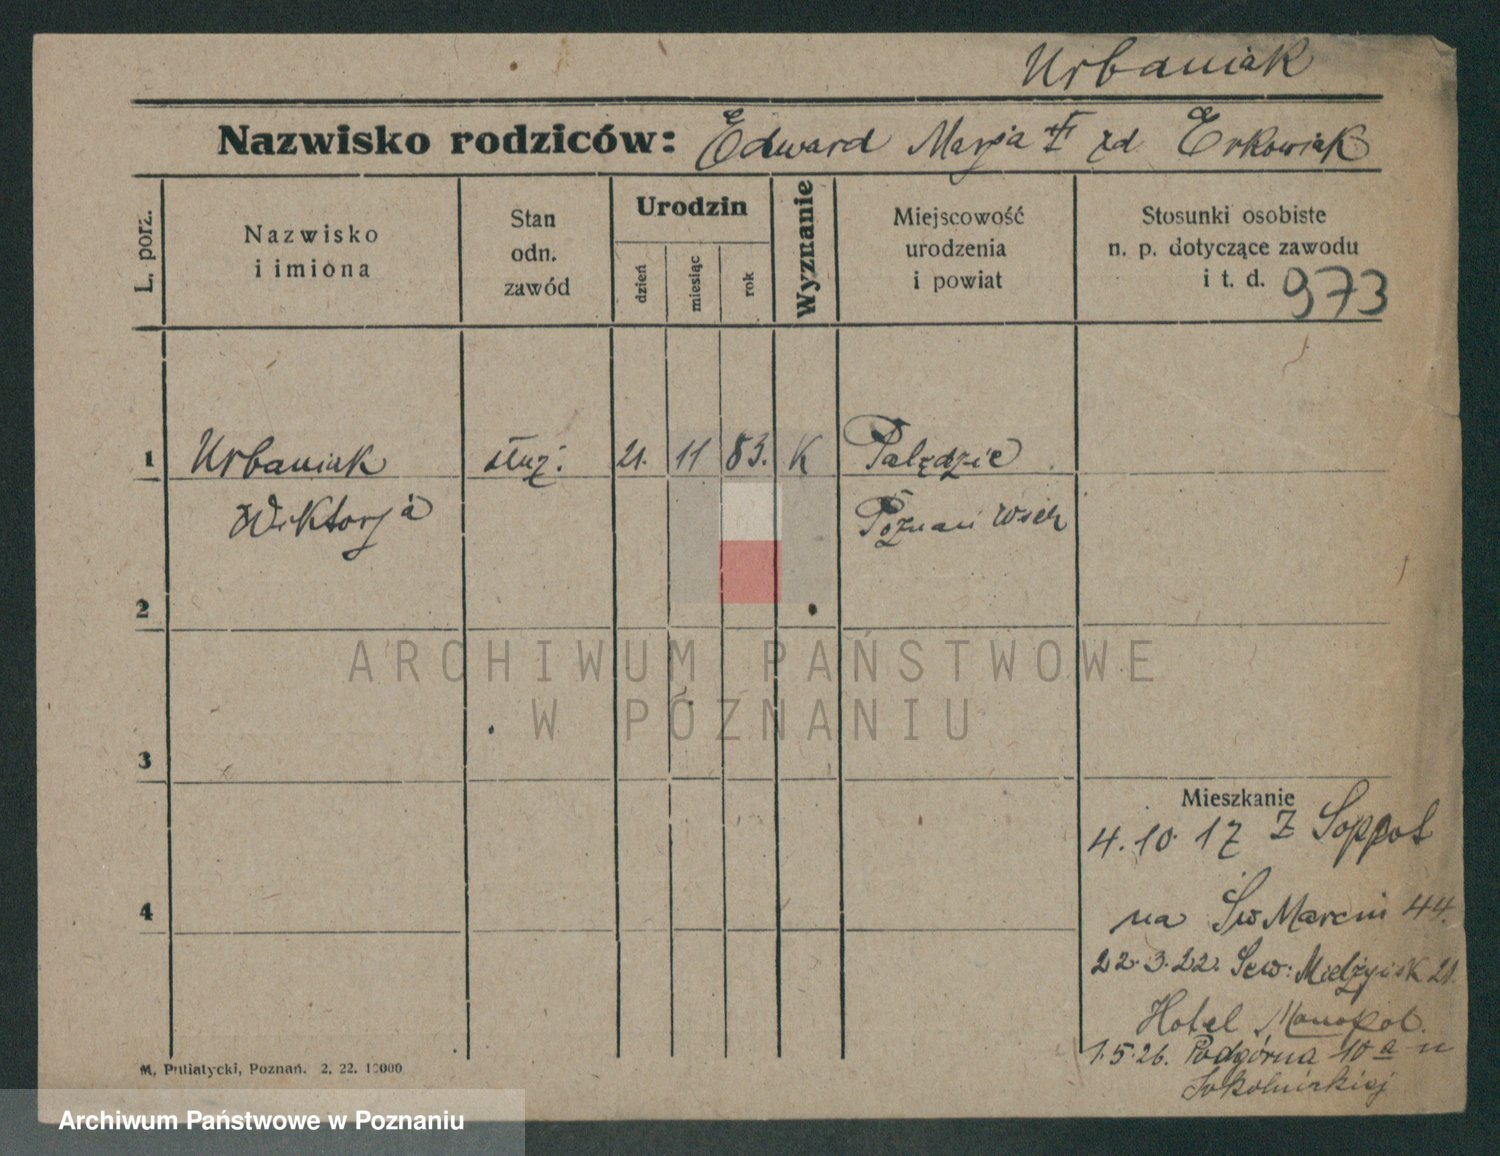 Urbaniak
Nazwisko rodziców: Edward Marja zd Erkowiak
L. porz.
Nazwisko
i imiona
Stan
odn.
zawód
Urodzin
dzień
miesiąc
rok
Wyznanie
Miejscowość
urodzenia
i powiat
Stosunki osobiste
n. p. dotyczące zawodu
i t. d. 973
1 Urbaniak służ. 21. 11 83. K Palędzie
Wiktorja Poznań wsch
2
ARCHIWUM PAŃSTWOWE
W POZNANIU
3
Mieszkanie
4. 10 17 Z Soppot
4
na Św Marcin 44.
22. 3. 22. Sew: Mielżyńsk 21.
Hotel Monopol.
1. 5. 26. Podgórna 10 a u
Sokolnickiej
M. Putiatycki, Poznań. 2, 22. 10000
Archiwum Państwowe w Poznaniu